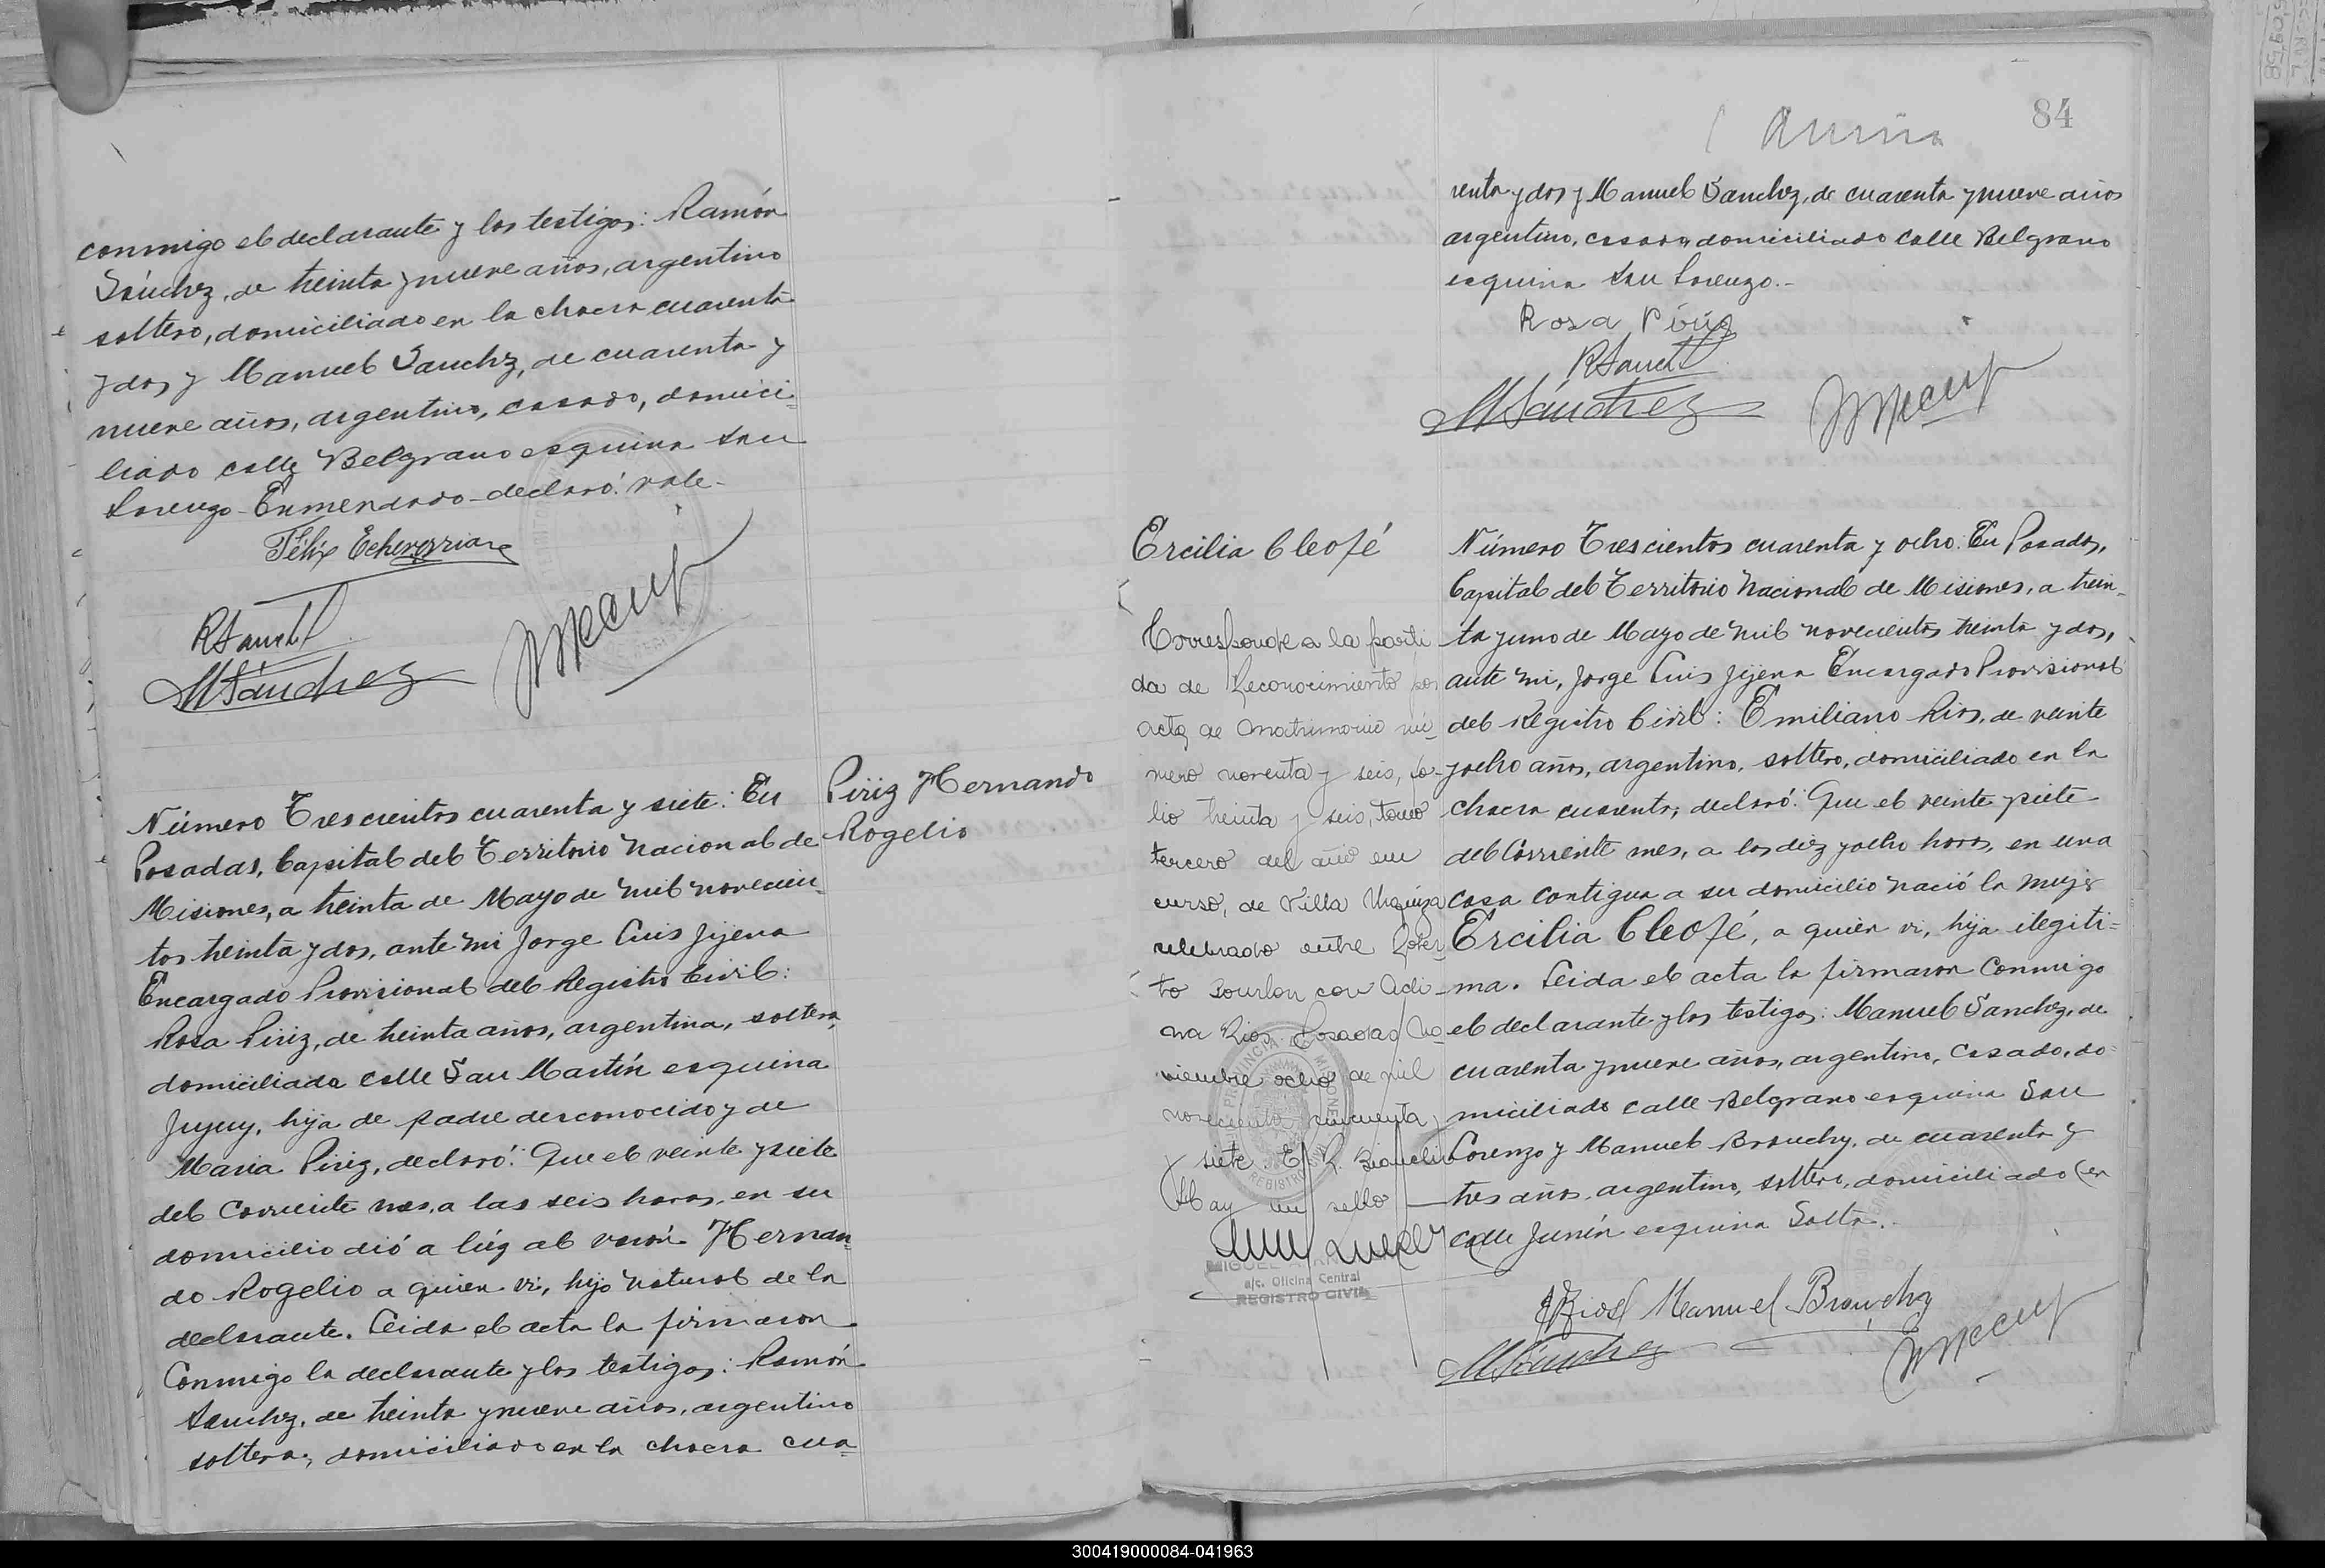 conmigo el declarante y los testigos: Ramón
Sánchez, de treinta y nueve años, argentino
soltero, domiciliado en la chacra cuarenta
y dos y Manuel Sanchez, de cuarenta y
nueve años, argentino, casado, domici=
liado calle Belgrano esquina San
Lorenzo - Enmendado - declaró: vale -
Félix Echeverria
RSanch
MSánchez
Número Trescientos cuarenta y siete: En
Posadas, Capital del Territorio Nacional de
Misiones, a treinta de Mayo de mil novecien_
tos treinta y dos, ante mi Jorge Luis Jijena
Encargado Provisional del Registro Civil:
Rosa Piriz, de treinta años, argentina, soltera,
domiciliada calle San Martín esquina
Jujuy, hija de padre desconocido y de
Maria Piriz, declaró: Que el veinte y siete
del corriente mes, a las seis horas, en su
domicilio dió a lúz al varón Hernan=
do Rogelio a quien vi, hijo natural de la
declarante. Leida el acta la firmaron
Conmigo la declarante y los testigos: Ramón
Sanchez, de treinta y nueve años, argentino
soltero, domiciliado en la chacra cua=
Piriz Hernando
Rogelio
84
renta y dos y Manuel Sanchez, de cuarenta y nueve años
argentino, casado, domiciliado calle Belgrano
esquina San Lorenzo.-
Rosa Píriz
RSanch
MSánchez
Ercilia Cleofé
Corresponde a la parti
da de Reconocimiento por
acta de matrimonio nú_
mero noventa y seis, fo-
lio treinta y seis, tomo
tercero del año en
curso, de Villa Urquiza
celebrado entre Rober_
to Bourlon con Adi_
na Rios. Posadas, No
viembre ocho de mil
novecientos cincuenta y
siete. E/ R.
Hay un sello
MIGUEL
a/c. Oficina Central
REGISTRO CIVIL
PROVINCIA DE MISIONES
REGISTRO
Número Trescientos cuarenta y ocho: En Posadas,
Capital del Territorio Nacional de Misiones, a trein_
ta y uno de Mayo de mil novecientos treinta y dos,
ante mi, Jorge Luis Jijena Encargado Provisional
del Registro Civil: Emiliano Rios, de veinte
y ocho años, argentino, soltero, domiciliado en la
chacra cuarenta; declaró: Que el veinte y siete
del Corriente mes, a las diez y ocho horas, en una
casa contigua a su domicilio nació la mujer
Ercilia Cleofé, a quien vi, hija ilegiti=
ma. Leida el acta la firmaron conmigo
el declarante y los testigos: Manuel Sanchez, de
cuarenta y nueve años, argentino, casado, do=
miciliado calle Belgrano esquina San
Lorenzo y Manuel Brouchy, de cuarenta y
tres años, argentino, soltero, domiciliado en
calle Junín esquina Salta.-
ERios Manuel Brouchy
MSánchez
300419000084-041963